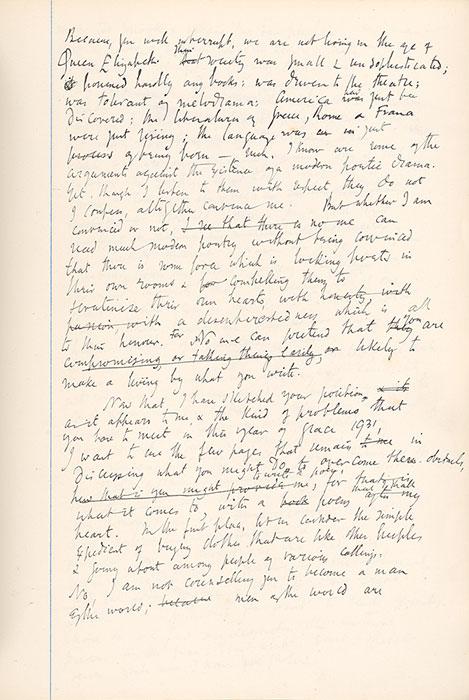 Because, you will interrupt, we are not living in the age of
Queen Elizabeth. Then society was small & unsophisticated;
possessed hardly any books: was driven to the theatre;
was tolerant of melodrama: America had just been
discovered; the literatures of Greece, Rome & France
were just rising; the language was in
process of being born — such, I know are some of the
arguments against the existence of a modern poetic drama.
Yet, though I listen to them with respect they do not
I confess, altogether convince me. But whether I am
convinced or not, I see that there is no one can
read much modern poetry without being convinced
that there is some force which is locking poets in
their own rooms & compelling them to
scrutinise their own hearts with honesty, with
passion, with a disinterestedness which is all
to their honour. For no one can pretend that you are
compromising or taking things easily, or likely to
make a living by what you write.
Now that I have sketched your position,
as it appears to me, & the kind of problems that
you have to meet in this year of grace 1931,
I want to use the few pages that remain to me in
discussing what you might do to overcome them. obviously,
how that is you might provide me, to write a poem, for that
what it comes to, with a book poem after my
heart. In the first place, let us consider the simple
expedient of buying clothes that are like other peoples
& going about among people of various callings.
No, I am not counselling you to become a man
of the world; because men of the world are